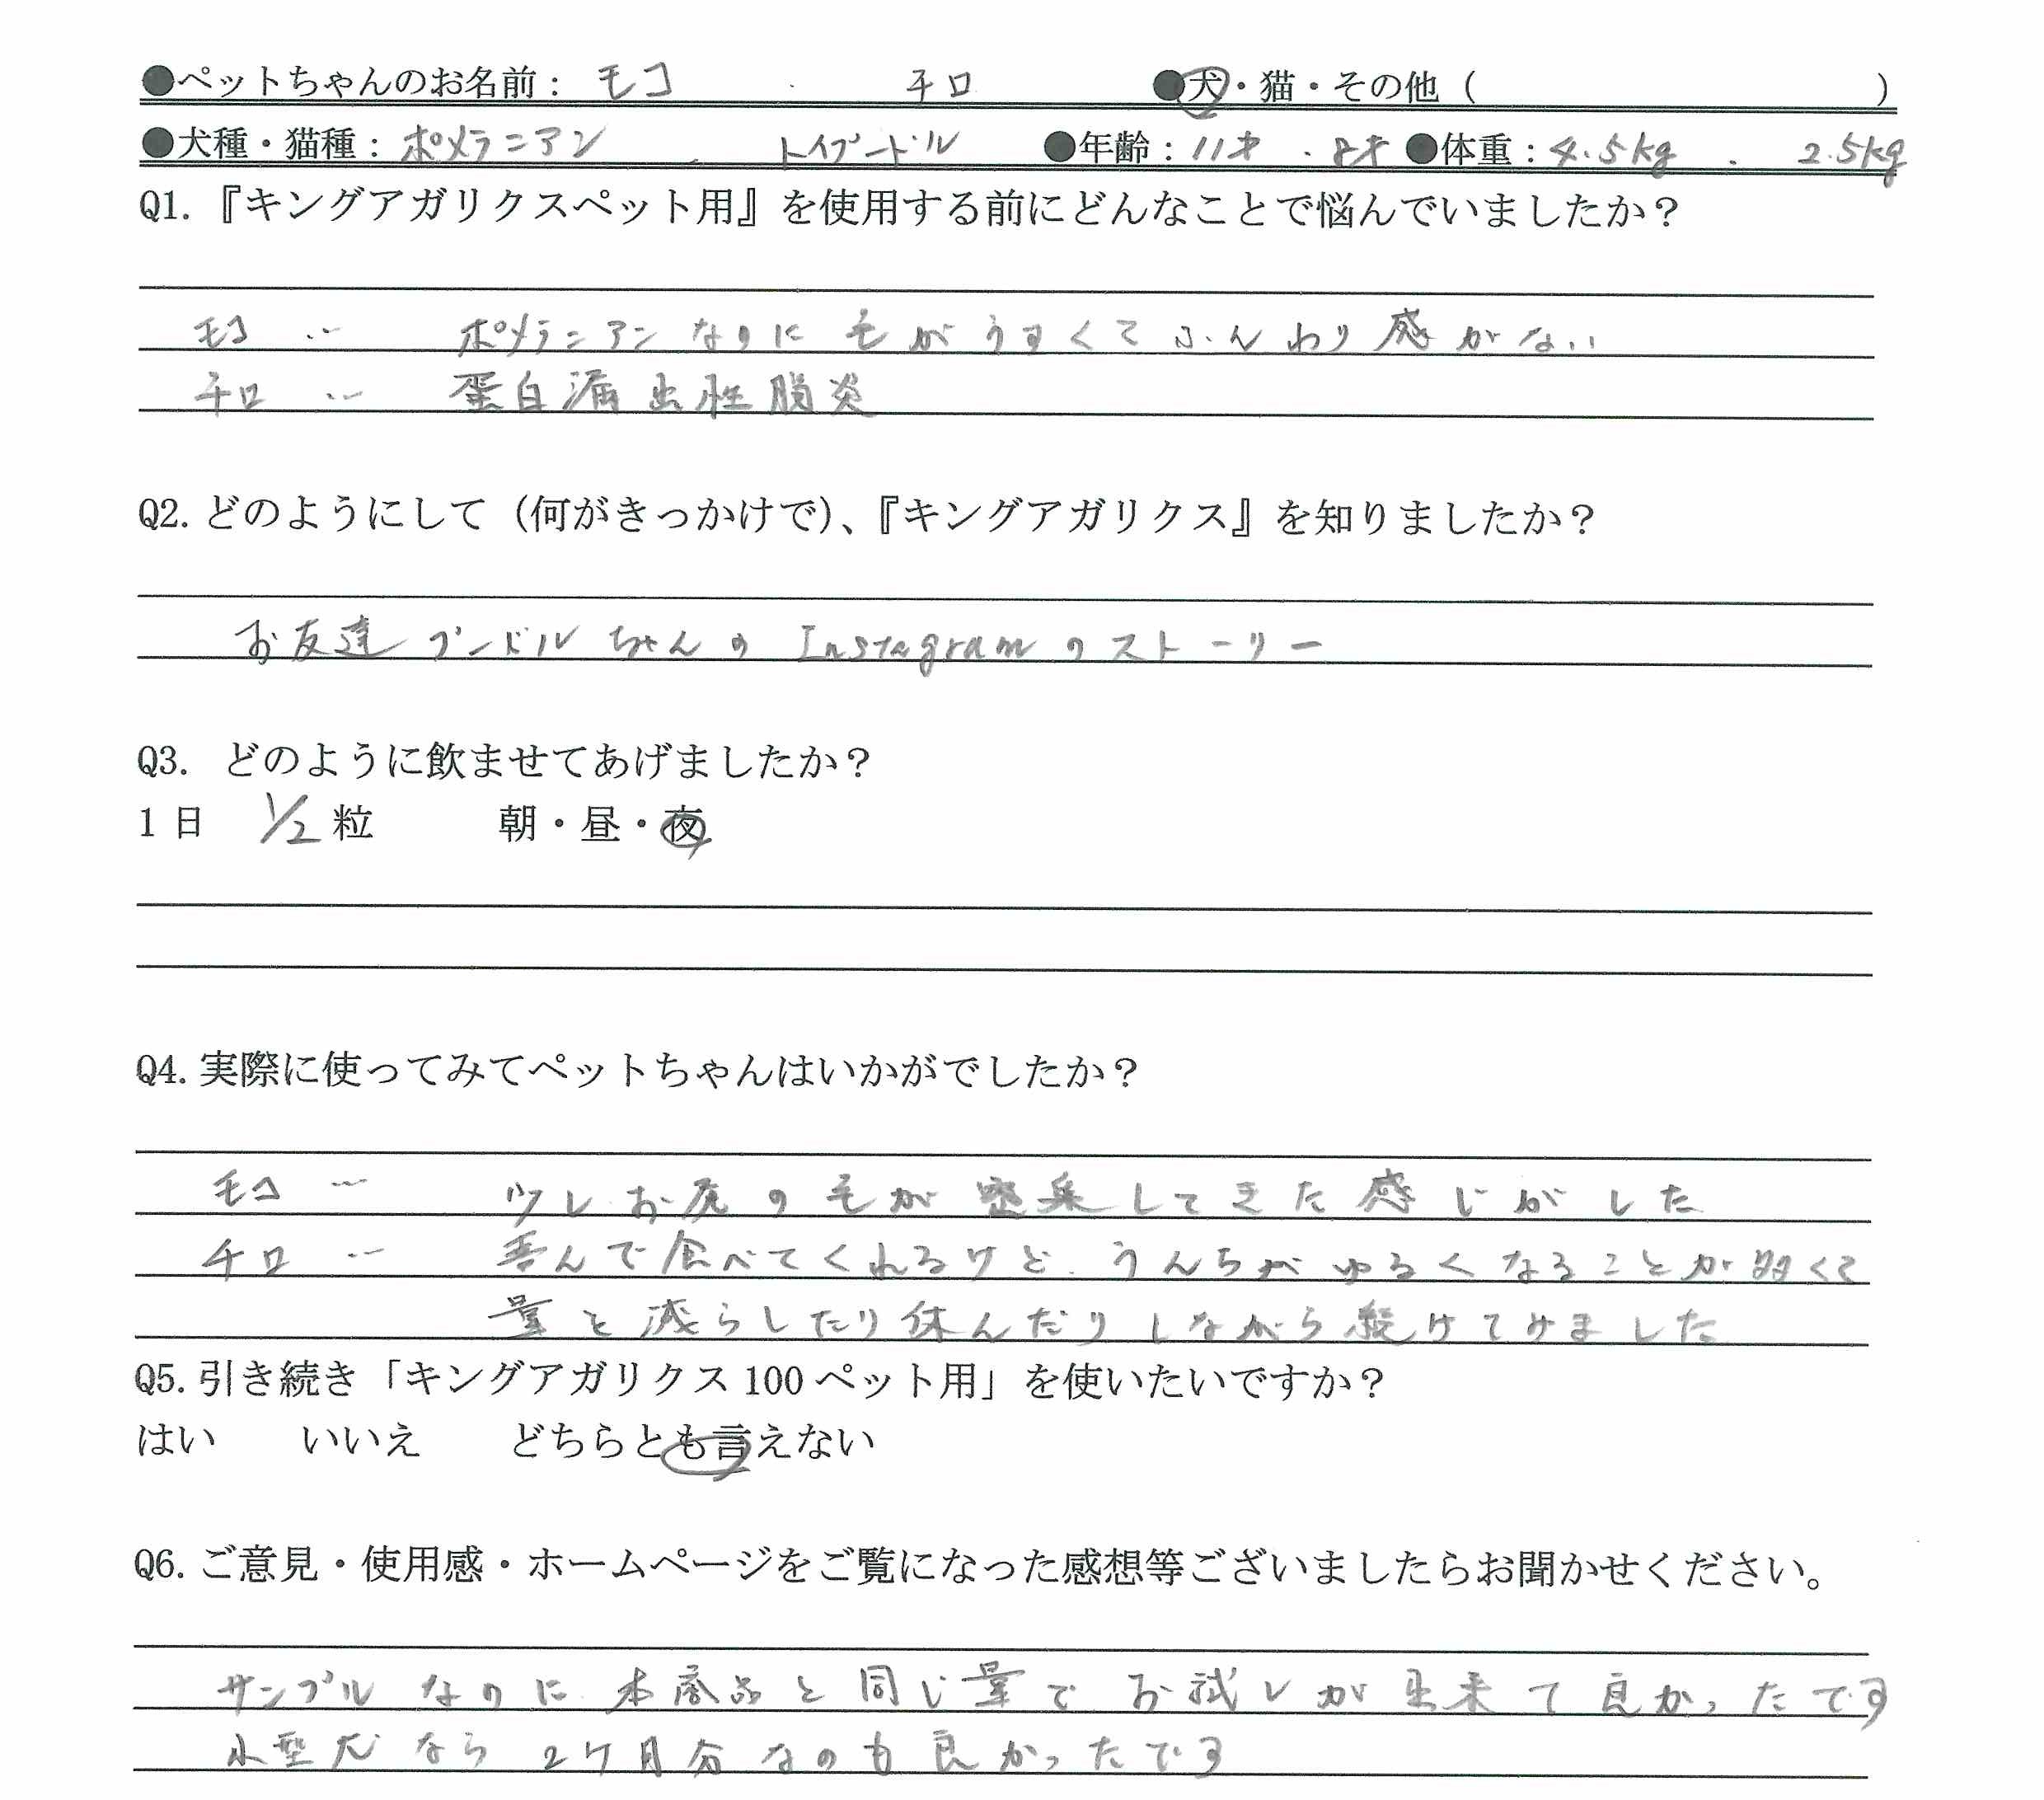 ●ペットちゃんのお名前： モコ ・ チロ ●犬・猫・その他（ ）
●犬種・猫種：ポメラニアン ・ トイプードル ●年齢：11才 ・ 8才 ●体重：4.5kg ・ 2.5kg
Q1.『キングアガリクスペット用』を使用する前にどんなことで悩んでいましたか？
モコ … ポメラニアンなのに毛がうすくてふんわり感がない
チロ … 蛋白漏出性腸炎
Q2.どのようにして（何がきっかけで）、『キングアガリクス』を知りましたか？
お友達 ちゃんのInstagramのストーリー
Q3. どのように飲ませてあげましたか？
1日 1/2 粒 朝・昼・夜
Q4.実際に使ってみてペットちゃんはいかがでしたか？
モコ … 少しお尻の毛が密集してきた感じがした
チロ … 喜んで食べてくれるけど、うんちがゆるくなることが多くて
量を減らしたり休んだりしながら続けてみました
Q5.引き続き「キングアガリクス100ペット用」を使いたいですか？
はい いいえ どちらとも言えない
Q6.ご意見・使用感・ホームページをご覧になった感想等ございましたらお聞かせください。
サンプルなのに本商品と同じ量でお試しが出来て良かったです
小型犬なら2ケ月分なのも良かったです